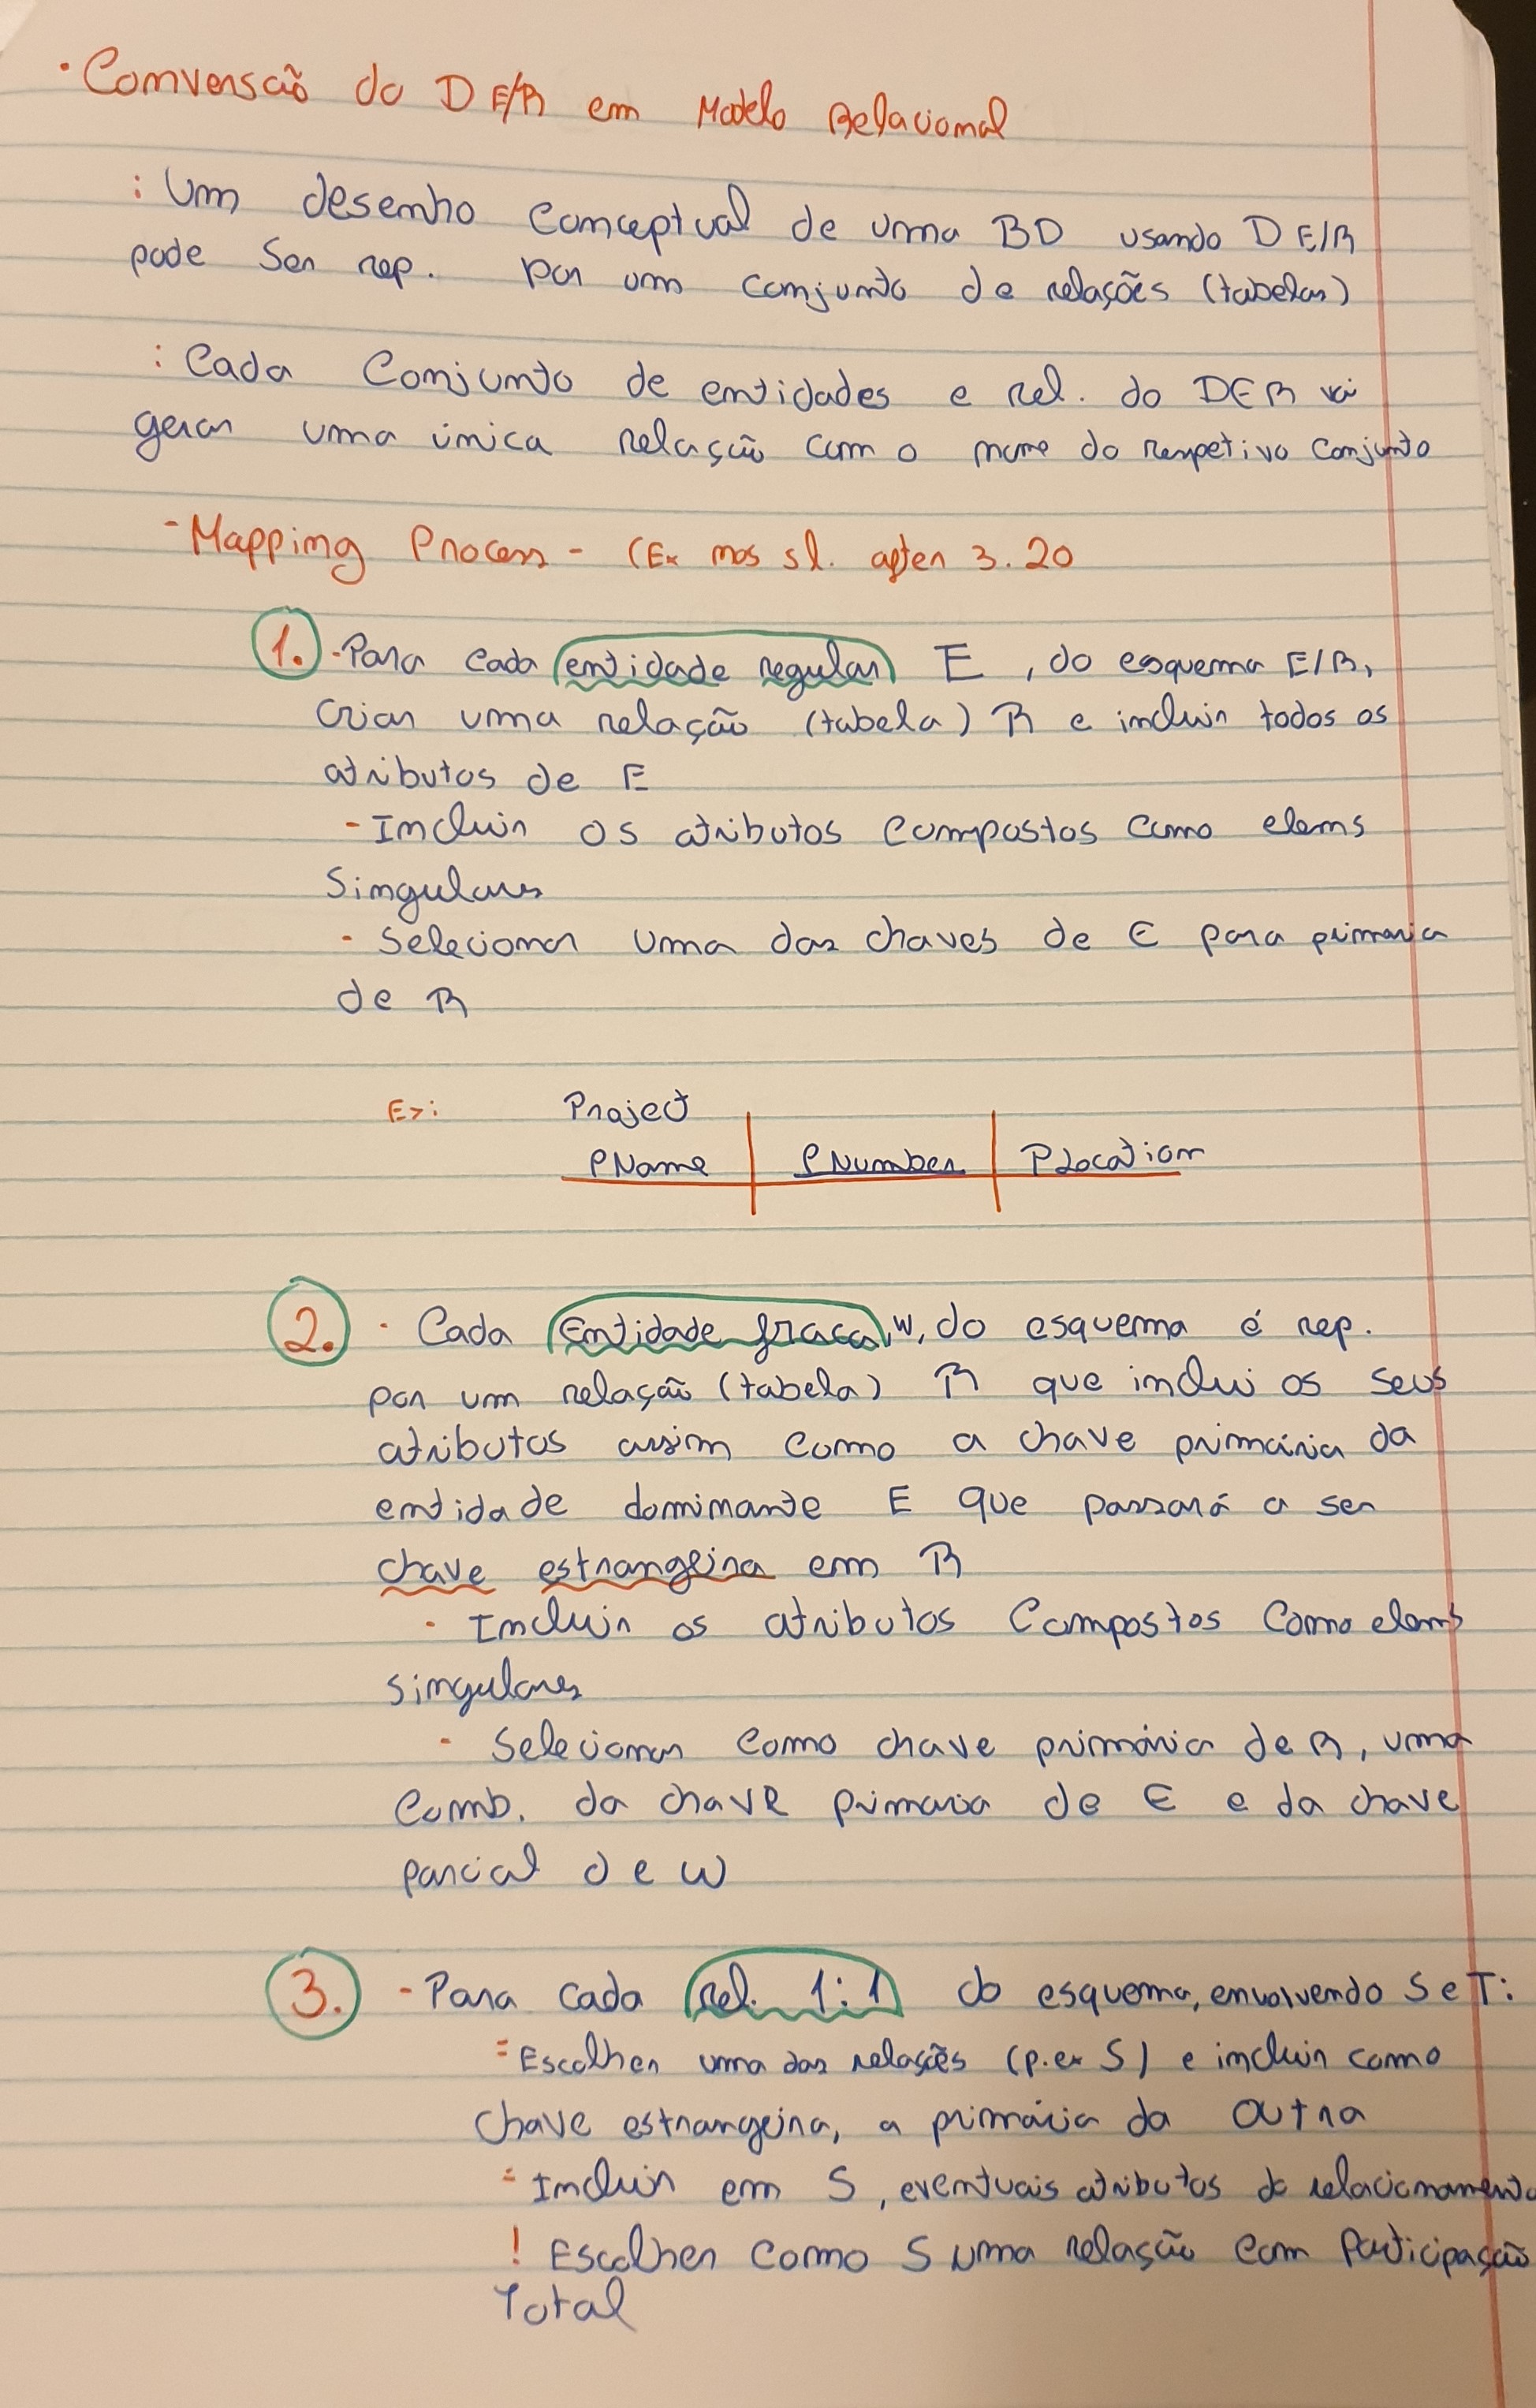 · Conversão do D E/R em Modelo Relacional
: Um desenho conceptual de uma BD usando D E/R
pode ser rep. por um conjunto de relações (tabelas)
: Cada conjunto de entidades e rel. do DER vai
gerar uma única relação com o nome do respetivo conjunto
- Mapping Process - (Ex nos sl. after 3.20
1. - Para cada entidade regular E, do esquema E/R,
criar uma relação (tabela) R e incluir todos os
atributos de E
- Incluir os atributos compostos como elems
singulares
- Selecionar uma das chaves de E para primaria
de R
Ex: Project
PName | PNumber | PLocation
2. · Cada Entidade fraca, W, do esquema é rep.
por um relação (tabela) R que inclui os seus
atributos assim como a chave primária da
entidade dominante E que passará a ser
chave estrangeira em R
· Incluir os atributos compostos como elems
singulares
· Selecionar como chave primária de R, uma
comb. da chave primaria de E e da chave
parcial de W
3. - Para cada rel. 1:1 do esquema, envolvendo S e T:
= Escolher uma das relações (p.ex S) e incluir como
chave estrangeira, a primária da outra
= Incluir em S, eventuais atributos do relacionamento
! Escolher como S uma relação com Participação
Total